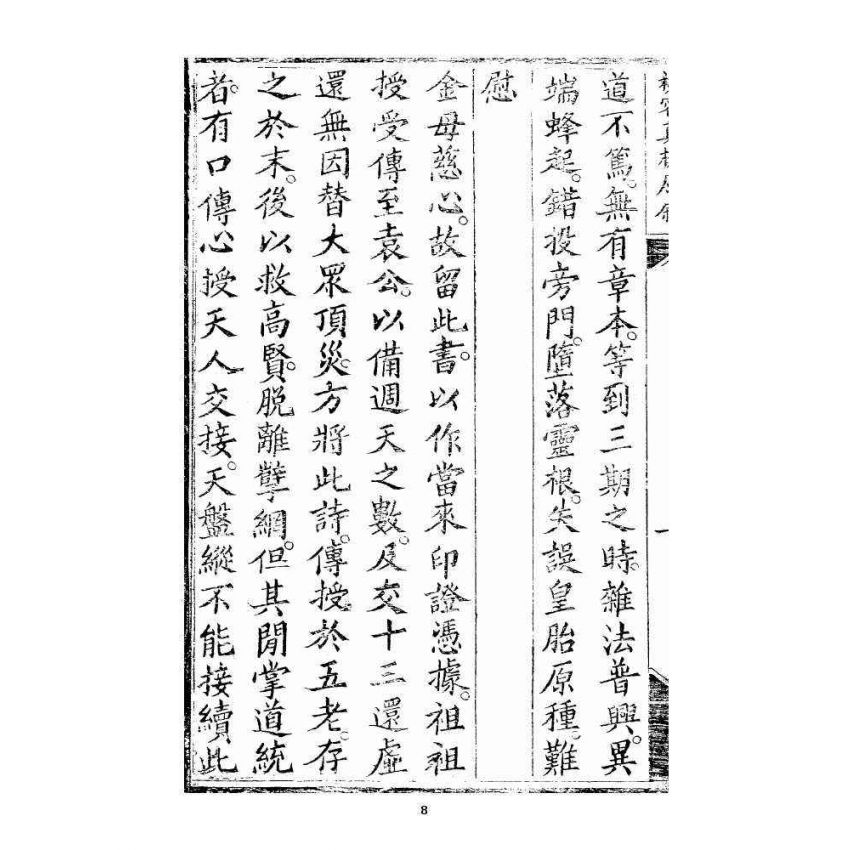 道不篤。無有章本。等到三期之時。雜法普興。異
端蜂起。錯投旁門。墮落靈根。失誤皇胎原種。難
慰
金母慈心。故留此書。以作當來印證憑據。祖祖
授受傳至袁公。以備週天之數。及交十三還虛
還無因替大眾頂災。方將此詩。傳授於五老。存
之於末。後以救高賢。脫離孽網。但其閒掌道統
者。有口傳心授天人交接。天盤縱不能接續。此
8